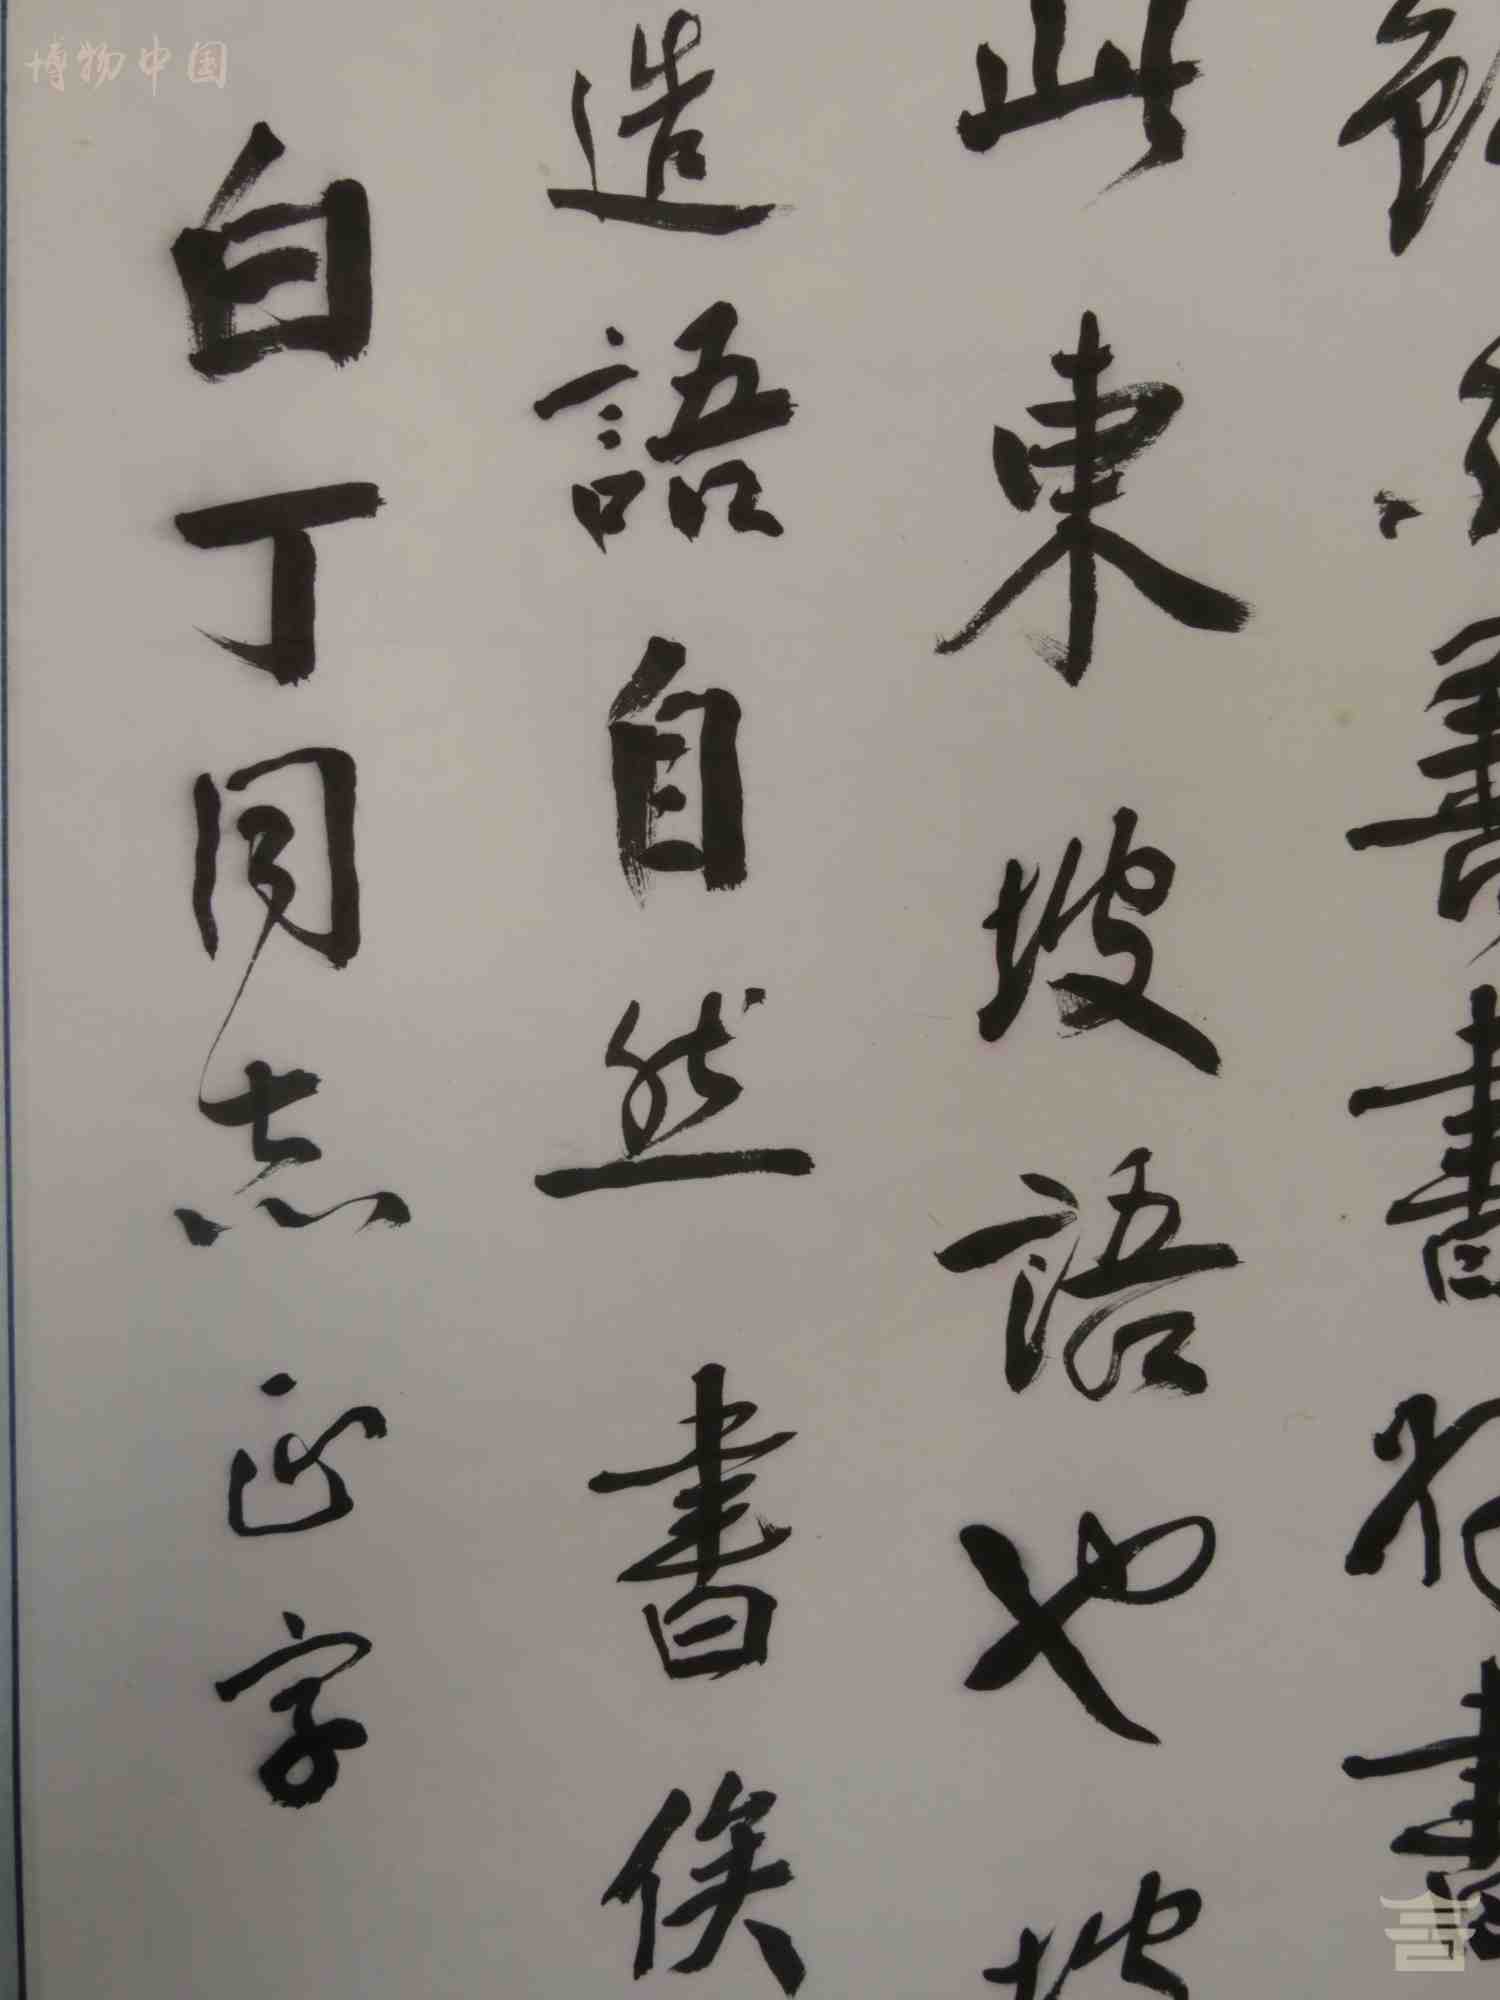 善書書
此東坡語也坡
造語自然書俟
白丁同志正字
博物中国